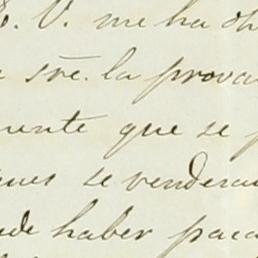 V. me ha
sre. la prova
ente que se
ues se vendera
de haber para